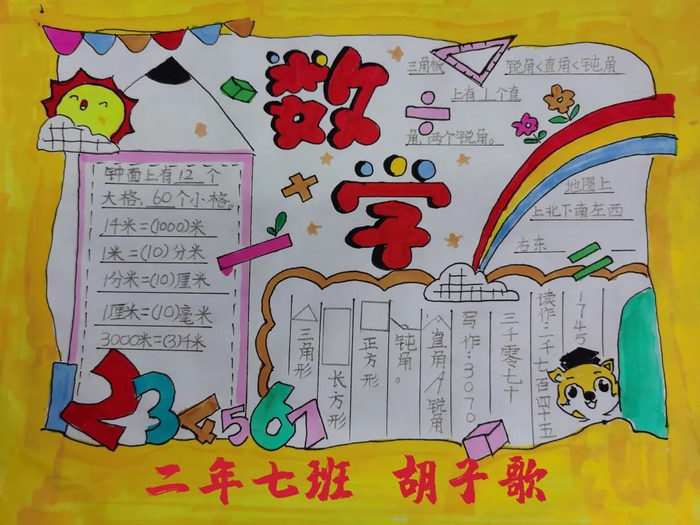 数学
三角板 锐角<直角<钝角
上有1个直
角,两个锐角。
钟面上有12个
大格,60个小格。
1千米=(1000)米
1米=(10)分米
1分米=(10)厘米
1厘米=(10)毫米
3000米=(3)千米
地图上
上北下南左西
右东
1745
读作:二千七百四十五
三千零七十
写作:3070
直角 锐角
钝角。
正方形
长方形
三角形
1234567
二年七班 胡子歌